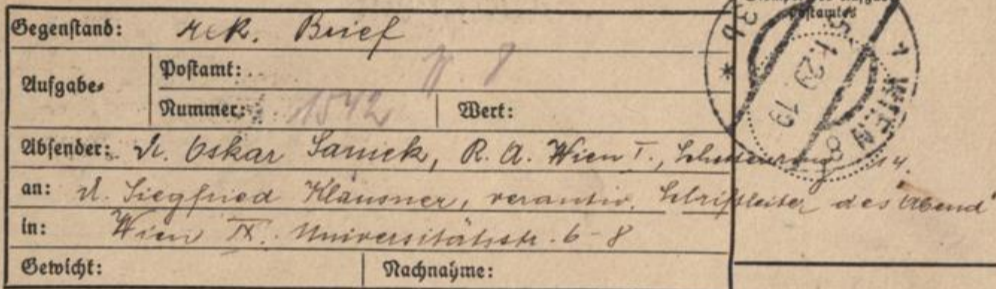 Gegenstand: rek. Brief
Aufgabe-
Postamt: W. 8
Nummer: 1542 Wert:
Absender: Dr. Oskar Samek, R. A. Wien I., Schottenring 14.
an: Dr. Siegfried Klausner, verantw. Schriftleiter des "Abend"
in: Wien IX. Universitätsstr. 6-8
Gewicht: Nachnahme:
postamtes
1 WIEN 8